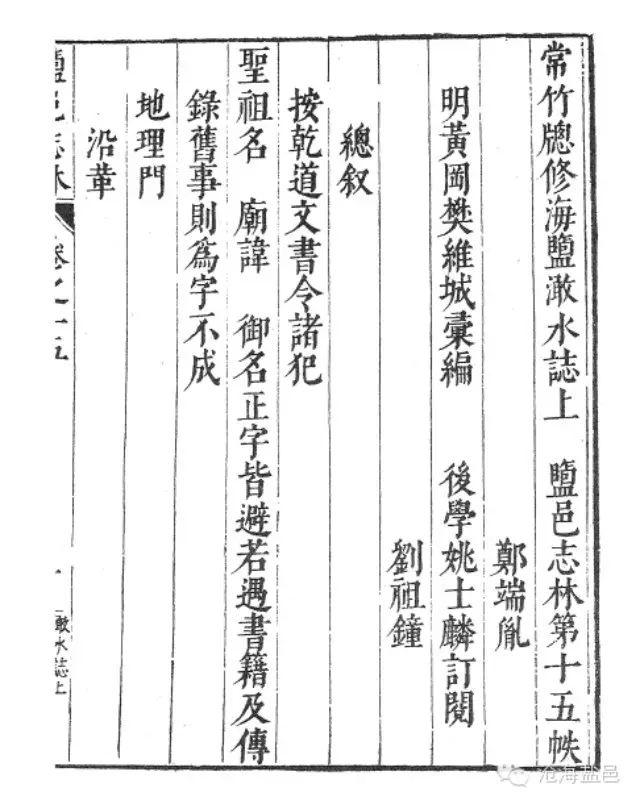 常竹牕修海鹽澉水誌上　鹽邑志林第十五帙
鄭端胤
明黃岡樊維城彙編　後學姚士麟訂閱
劉祖鐘
總叙
按乾道文書令諸犯
聖祖名　廟諱　御名正字皆避若遇書籍及傳
錄舊事則為字不成
地理門
沿革
鹽邑志林　卷之十五　一　澉水誌上
沧海盐邑